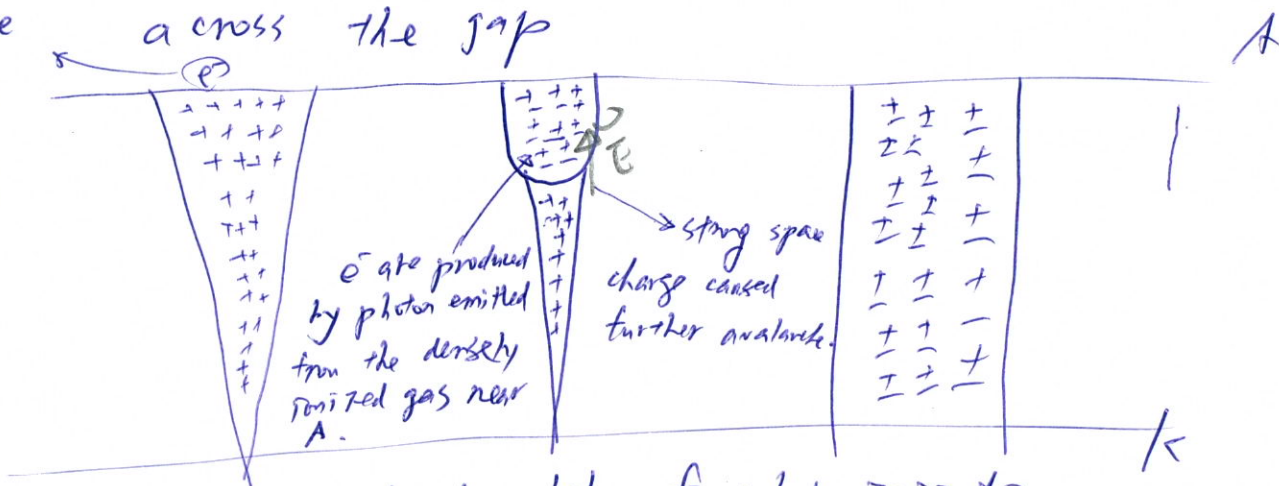 e across the gap
A
e⁻
+ + + + +
+ + + +
+ + + +
+ +
+ + +
+ +
+ +
+ +
+ +
+
+
+
E
e⁻ are produced
by photon emitted
from the densely
ionized gas near
A.
strong space
charge caused
further avalanche.
± ± ±
± ± ±
± ±
± ± ±
± ± +
± ± −
± ± ±
K